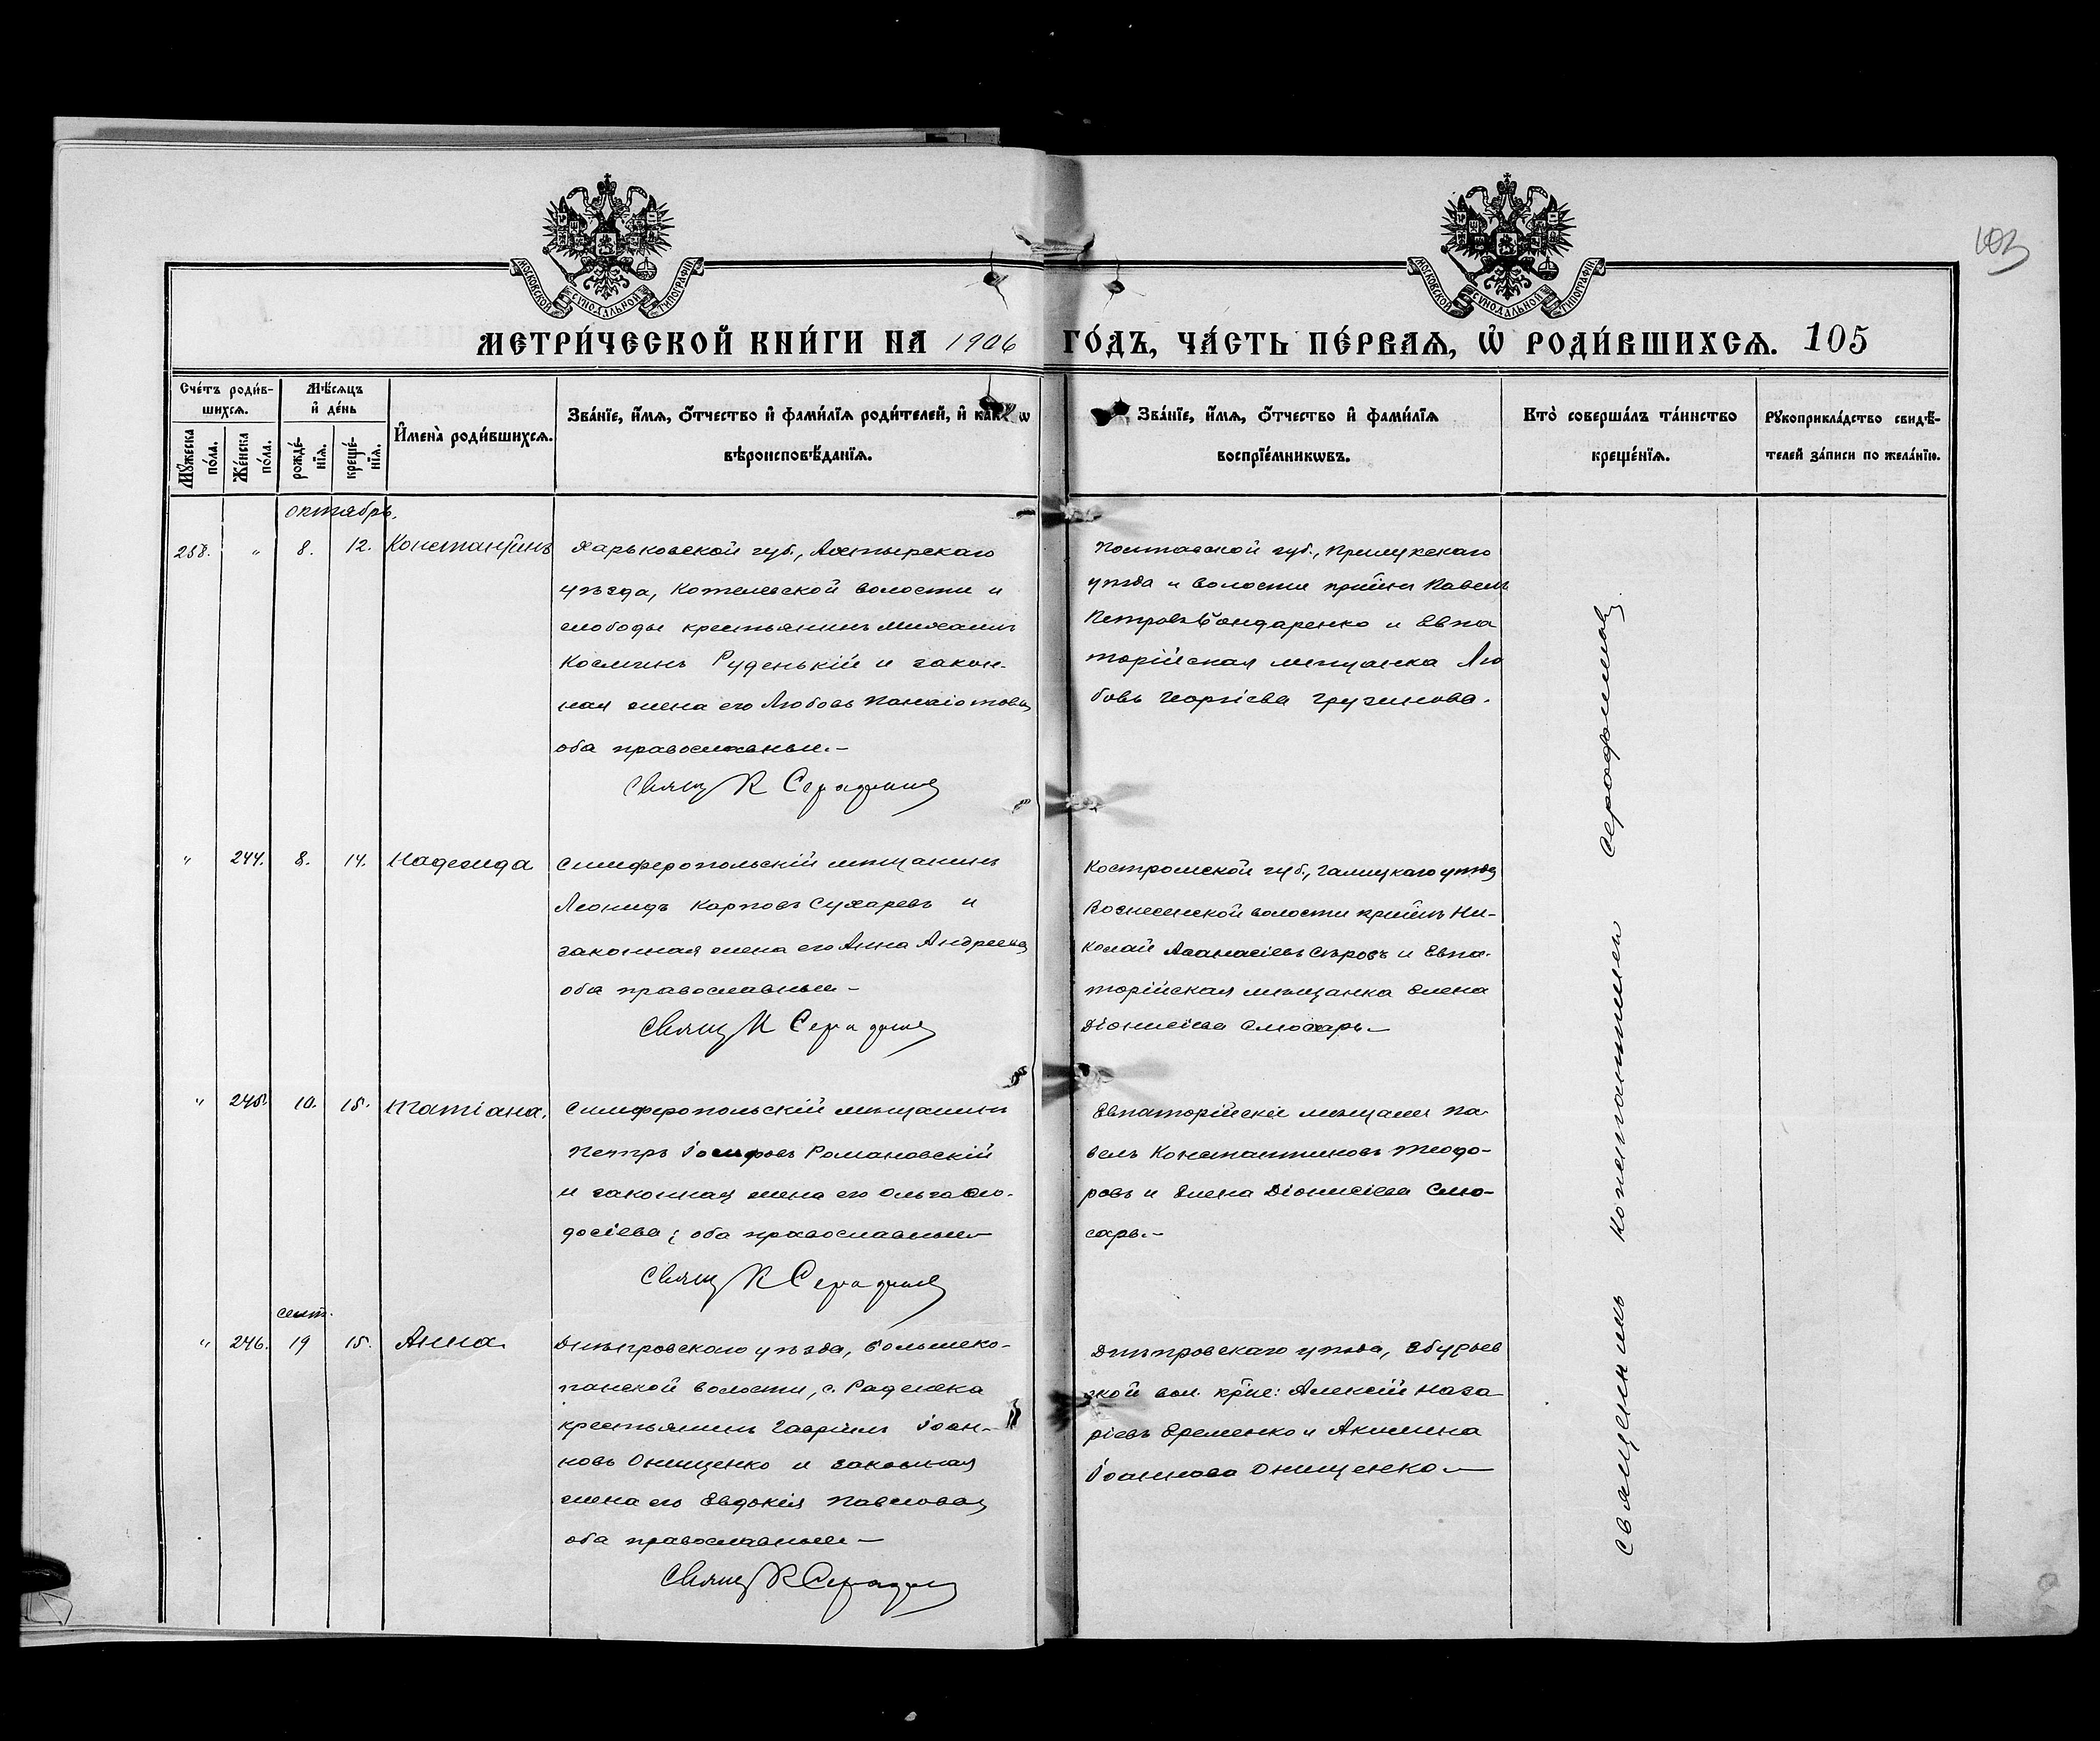 103
МОСКОВСКОЙ СУНОДАЛЬНОЙ ТИПОГРАФІИ
МОСКОВСКОЙ СУНОДАЛЬНОЙ ТИПОГРАФІИ
МЕТРИ́ЧЕСКОЙ КНИ́ГИ НА 1906 ГО́ДЪ, ЧА́СТЬ ПЕ́РВАЯ, Ѡ РОДИ́ВШИХСЯ. 105
Сче́тъ роди́в-
шихся.
Мꙋ́жеска
по́ла.
Же́нска
по́ла.
Мѣ́сяцъ
и҆ де́нь
рожде́-
нїя.
креще́-
нїя.
И҆мена̀ роди́вшихся.
Зва́нїе, и҆́мя, ѻ҆́тчество и҆ фами́лїя роди́телей, и҆ как
вѣроисповѣ́данїя.
Зва́нїе, и҆́мя, ѻ҆́тчество и҆ фами́лїя
воспрїе́мникѡвъ.
Кто̀ соверша́лъ та́инство
креще́нїя.
Рꙋкоприкла́дство свидѣ́-
телей за́писи по жела́нїю.
октябрь.
258. " 8. 12. Константинъ
Харьковской губ., Ахтырскаго
уѣзда, Котелевской волости и
слободы крестьянинъ Михаилъ
Косминъ Руденькій и закон-
ная жена его Любовь Панаіотова
оба православные.—
Свящ К Серафимов
Полтавской губ., Прилукскаго
уѣзда и волости кр-нинъ Павелъ
Петровъ Бондаренко и Евпа
торійская мѣщанка Лю
бовь Георгіева Грузинова.
" 244. 8. 14. Надежда
Симферопольскій мѣщанинъ
Леонидъ Карповъ Сухаревъ и
законная жена его Анна Андреева
оба православные—
Свящ К Серафимов
Костромской губ., Галицкаго уѣзда
Вознесенской волости кр-нинъ Ни-
колай Аѳанасіевъ Сѣровъ и Евпа-
торійская мѣщанка Елена
Діонисіева Слюсарь—
" 245. 10. 15. Татіана.
Симферопольскій мѣщанинъ
Петръ Іосифовъ Романовскій
и законная жена его Ольга Ѳео-
досіева; оба православные—
Свящ К Серафимов
Евпаторійскіе мѣщане Па-
велъ Константиновъ Теодо-
ровъ и Елена Діонисіева Слю-
сарь.—
сент.
" 246. 19 15. Анна
Днѣпровскаго уѣзда, Большеко-
панской волости, с. Раденска
крестьянинъ Гавріилъ Іоан-
новъ Онищенко и законная
жена его Евдокія Павлова
оба православные—
Свящ К Серафимов
Днѣпровскаго уѣзда, Збурьев
ской вол. кр-не: Алексій Наза-
ріевъ Еременко и Акилина
Іоаннова Онищенко—
Священникъ Константинъ Серафимовъ